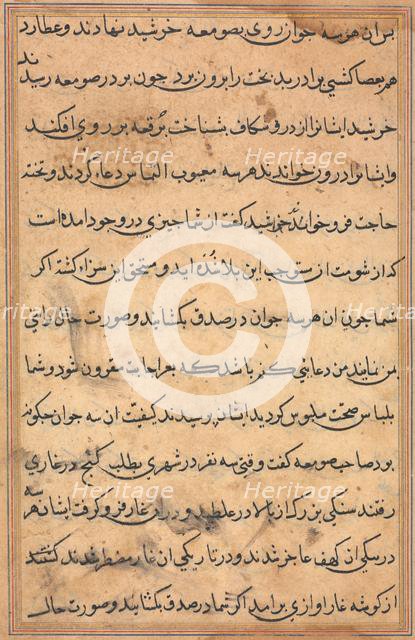 پس آن هر سه جوان روی بصومعه خرشید نهادند و عطارد
هم بعصاکشی برادر بدبخت را برون برد چون بر در صومعه رسیدند
خرشید ایشانرا از درو سکاف بشناخت برقعه بر روی افکند
و ایشانرا درون خواند هر سه معیوب التماس دعا کردند و تخته
حاجت فرو خواند خرشید گفت از شما چیزی در وجود امده است
که از شومت آن مستوجب این بلا شده اید و مستحق این سزا گشته اگر
شما چون آن هر سه جوان در صدق بکشایید و صورت حال براستی
بمن نمایید من دعایی کنم باشد که بعز اجابت مقرون شود و شما
بلباس صحت ملبوس گردید ایشان پرسیدند کیفیت آن سه جوان چگونه
بود صاحب صومعه گفت وقتی سه نفر در شهری بطلب گنج در غاری
رفتند سنگی بزرگ از بالا در غلطید و در آن غار فرو گرفت ایشان هر سه
در یکی آن کهف عاجز شدند و در تاریکی آن غار مضطر شدند گفتند
از گوشه غار اوازی بر امد اگر شما در صدق بکشایید و صورت حال
Heritage
Heritage
Heritage
Heritage
Heritage
Heritage
Heritage
Heritage
©